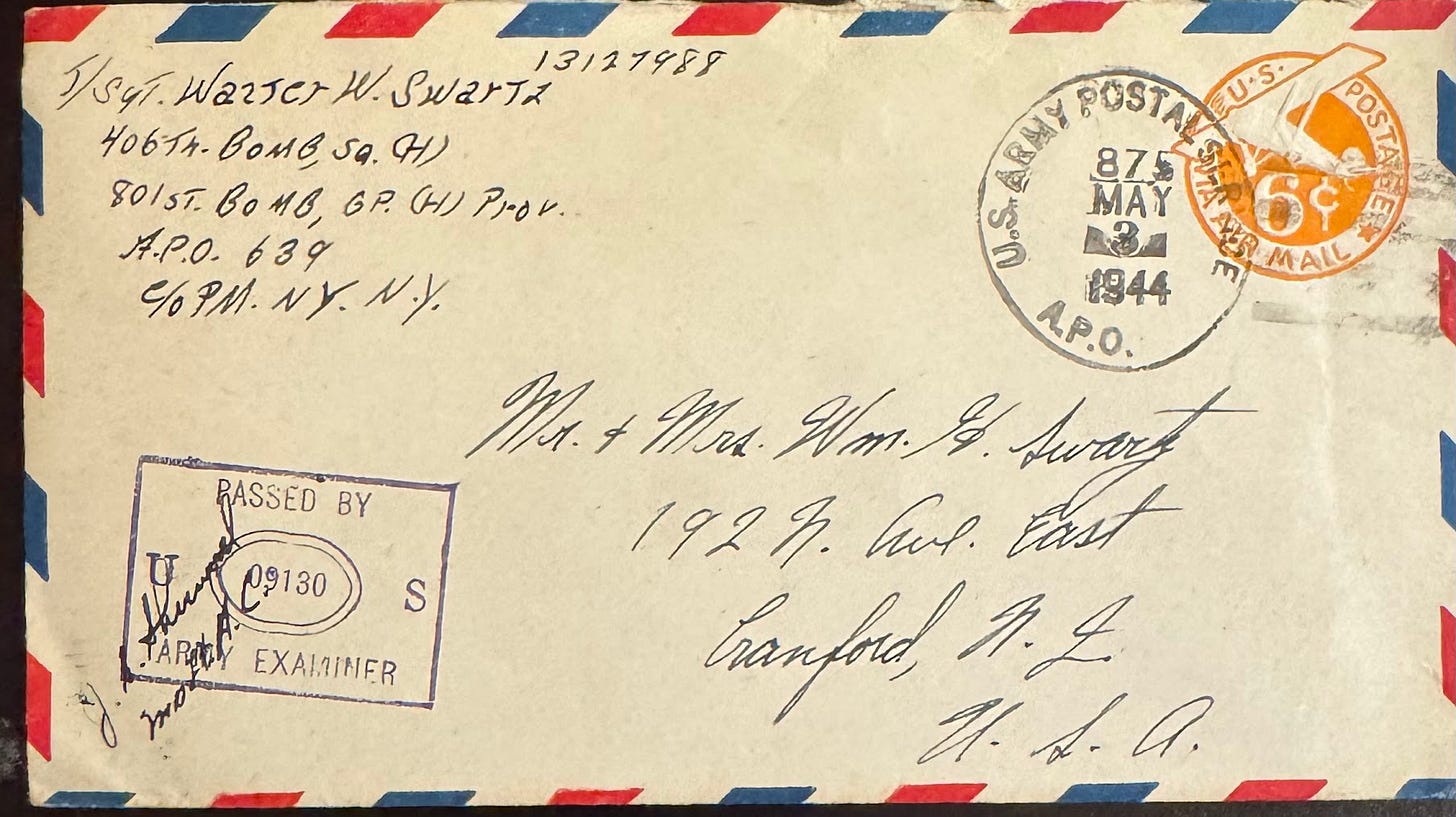 13127988
T/Sgt. Walter W. Swartz
406Th. BOMB, Sq. (H)
801ST. BOMB, GP. (H) Prov.
A.P.O. 639
C/O PM. NY. N.Y.
U.S. ARMY POSTAL SERVICE
875
MAY
3
1944
A.P.O.
U.S. POSTAGE
6¢
VIA AIR MAIL
Mr. & Mrs. Wm. H. Swartz
192 N. Ave. East
Cranford, N. J.
U. S. A.
PASSED BY
U S
09130
ARMY EXAMINER